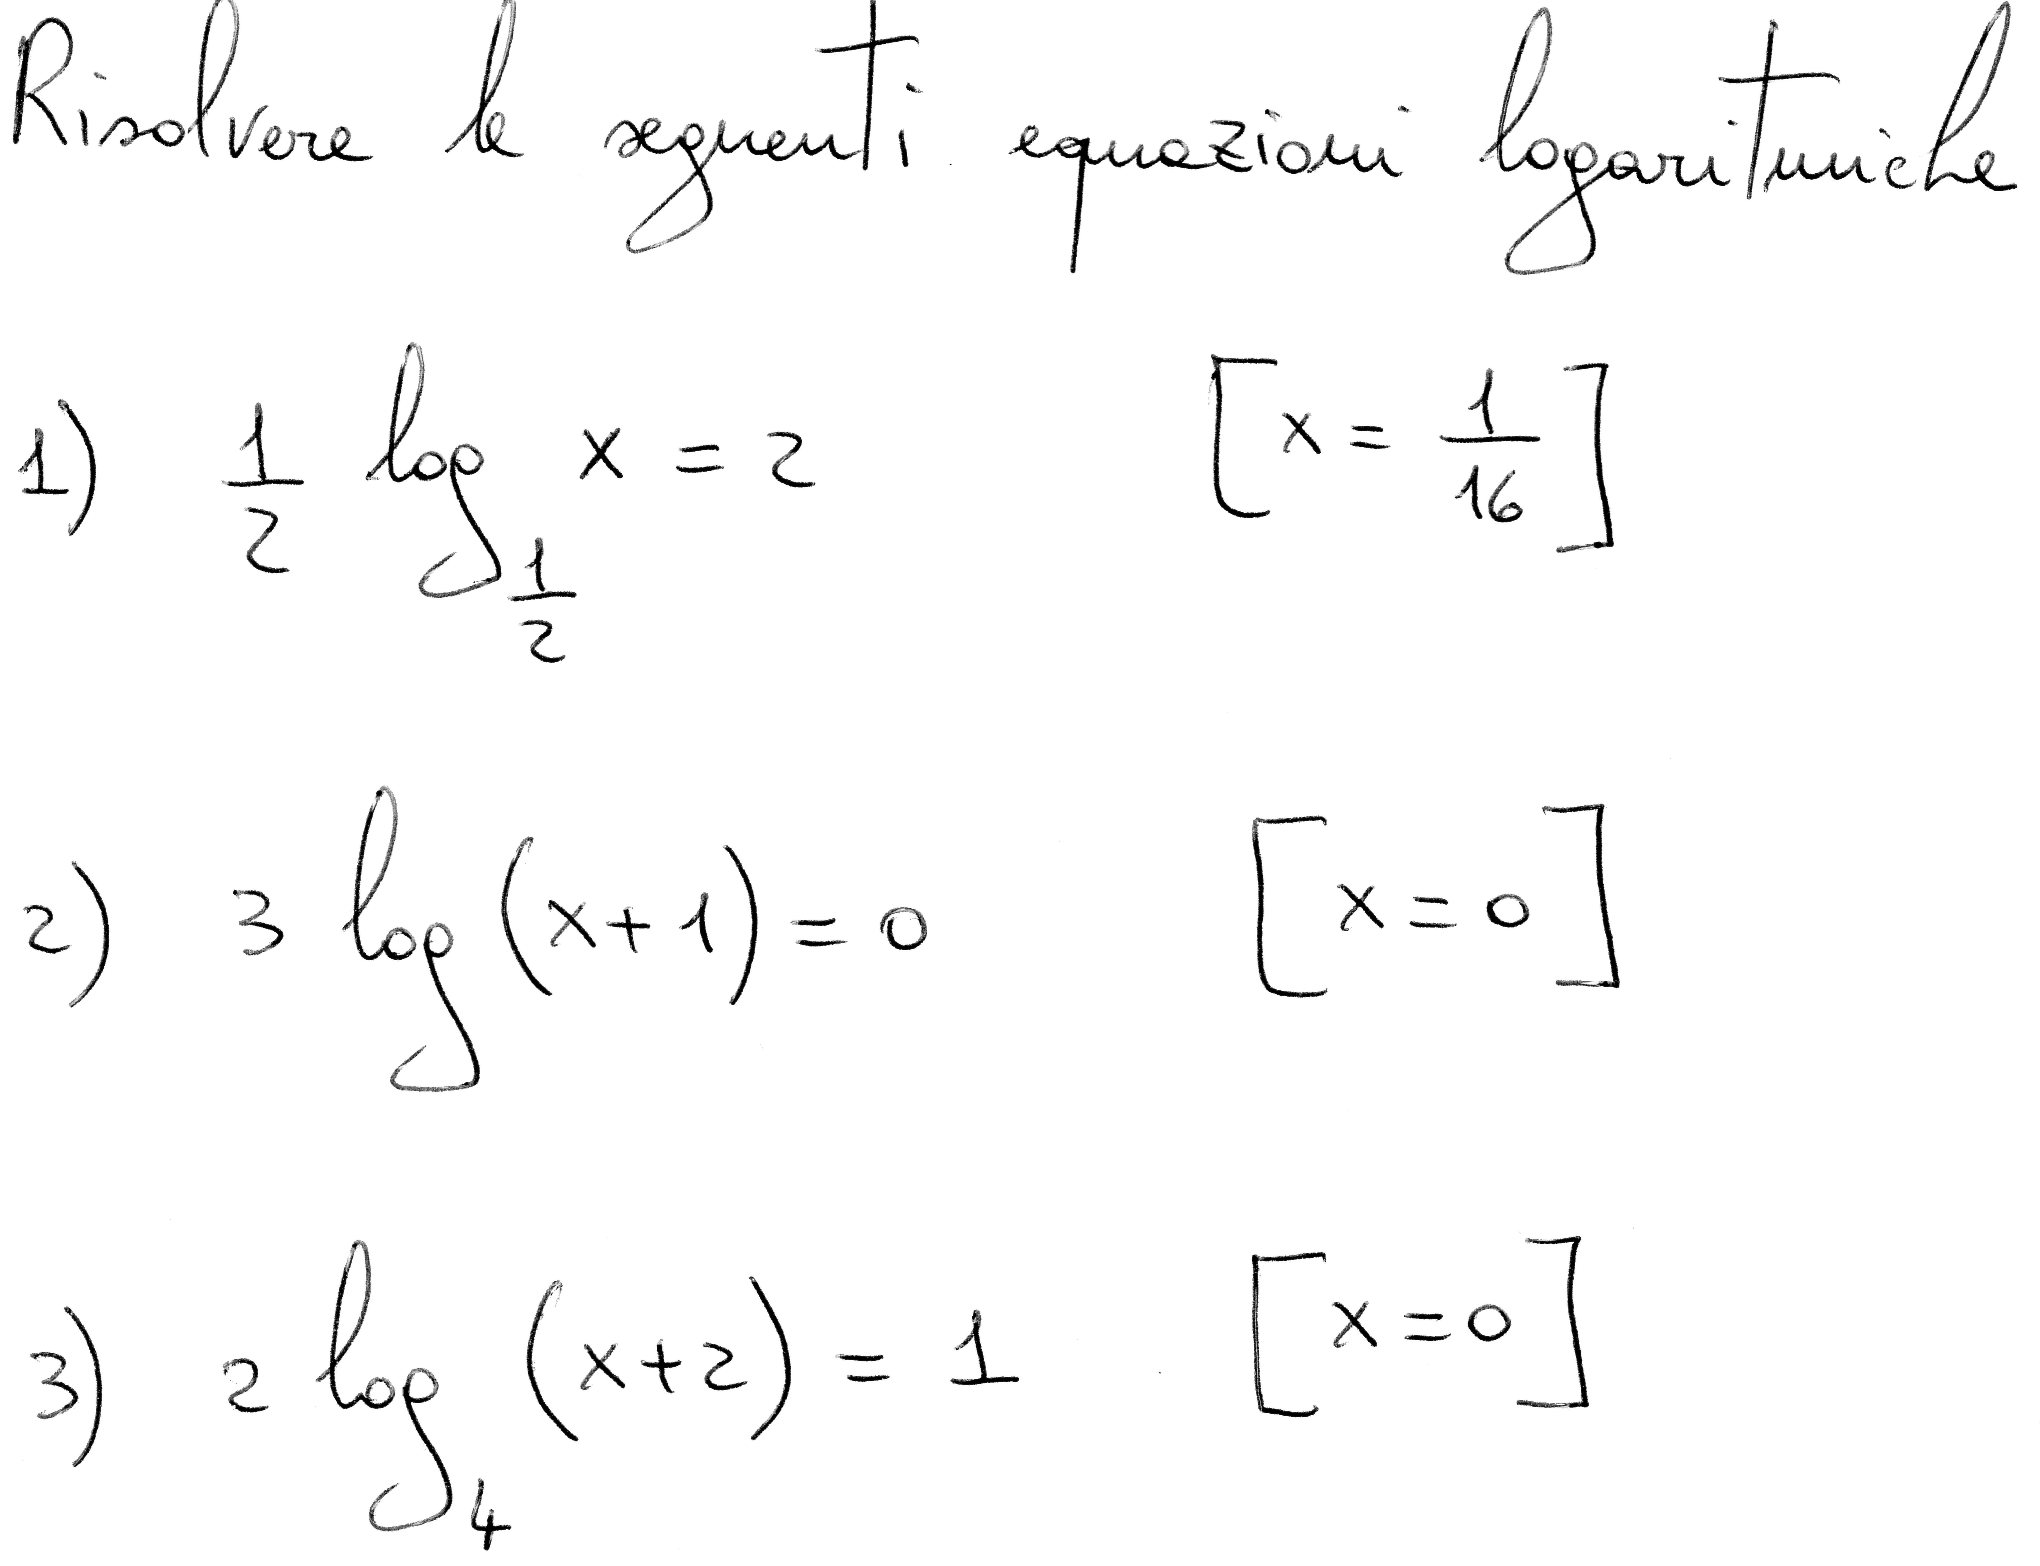 Risolvere le seguenti equazioni logaritmiche
1) 1/2 log_{1/2} x = 2 [x = 1/16]
2) 3 log (x+1) = 0 [x = 0]
3) 2 log_4 (x+2) = 1 [x = 0]